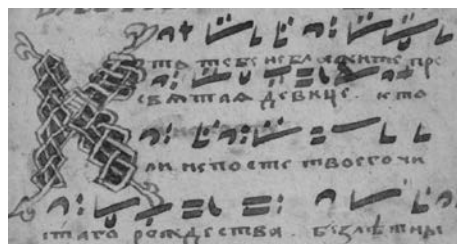 то тебе не блажите пре
свѧтаѧ девице. кто
ли не поете твоего чи
стаго рождества. безлѣтны